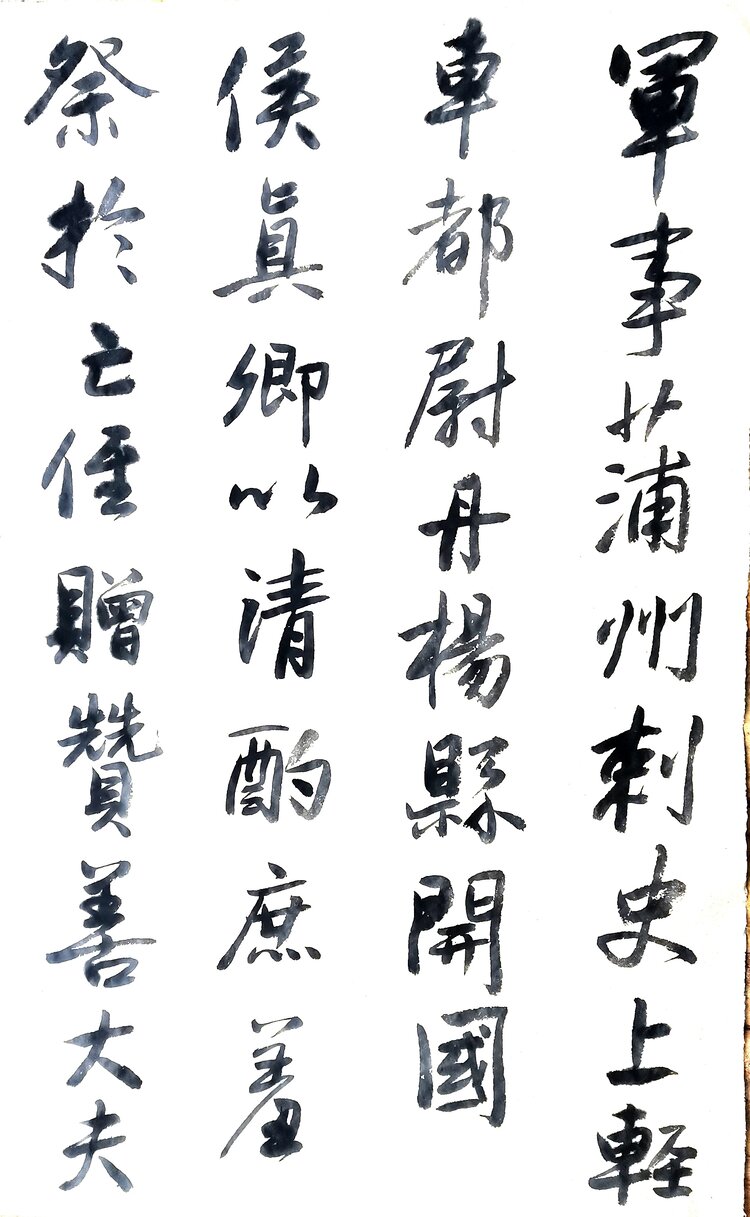 軍事蒲州刺史上輕
車都尉丹楊縣開國
侯真卿以清酌庶羞
祭於亡侄贈贊善大夫